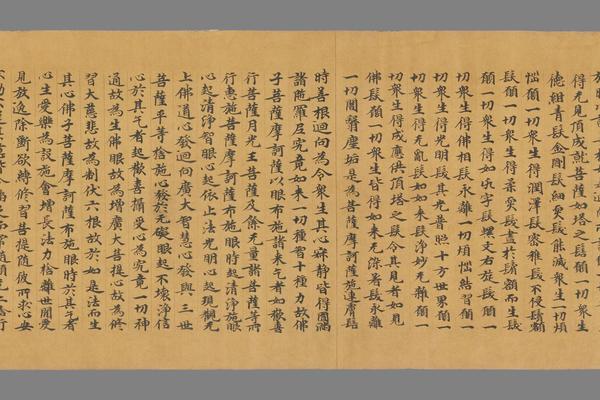 得无見頂成就菩薩如塔之髻願一切衆生
德紺青髮金剛髮細耎髮能滅衆生一切煩
惱願一切衆生得潤澤髮密緻髮不侵鬢額
髮願一切衆生得柔耎髮盡於鬢額而生髮
願一切衆生得如卍字髮螺文右旋髮願一
切衆生得佛相髮永離一切煩惱結習願一
切衆生得光明髮其光普照十方世界願一
切衆生得无亂髮如如來髮淨妙无雜願一
切衆生得成應供頂塔之髮令其見者如見
佛髮願一切衆生皆得如來无染著髮永離
一切闇翳塵垢是為菩薩摩訶薩施連膚髻
時善根迴向為令衆生其心寂靜皆得圓滿
諸陀羅尼究竟如來一切種智十種力故佛
子菩薩摩訶薩以眼布施諸來乞者如歡喜
行菩薩月光王菩薩及餘无量諸菩薩等所
行惠施菩薩摩訶薩布施眼時起清淨施眼
心起清淨智眼心起依止法光明心起現觀无
上佛道心發迴向廣大智慧心發與三世
菩薩平等捨施心發於无礙眼起不壞淨信
心於其乞者起歡喜攝受心為究竟一切神
通故為生佛眼故為增廣大菩提心故為修
習大慈悲故為制伏六根故於如是法而生
其心佛子菩薩摩訶薩布施眼時於其乞者
心生愛樂為設施會增長法力捨離世間愛
見放逸除斷欲縛修習菩提隨彼所求心安